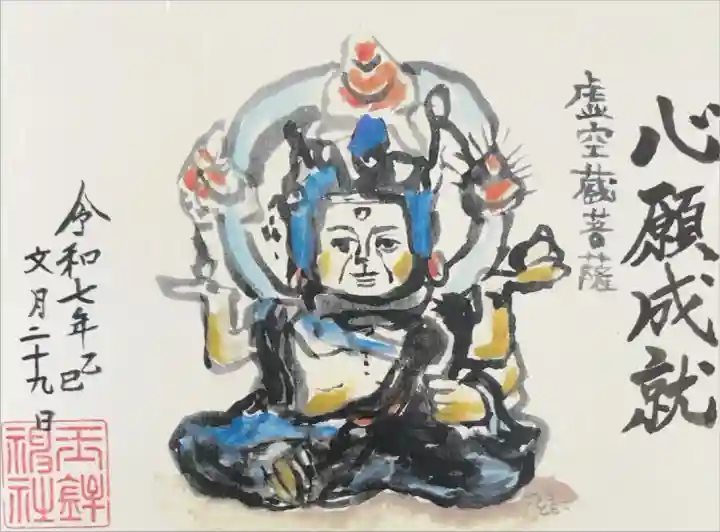 心願成就
虚空蔵菩薩
令和七年乙巳
文月二十九日
玉鉾
神社